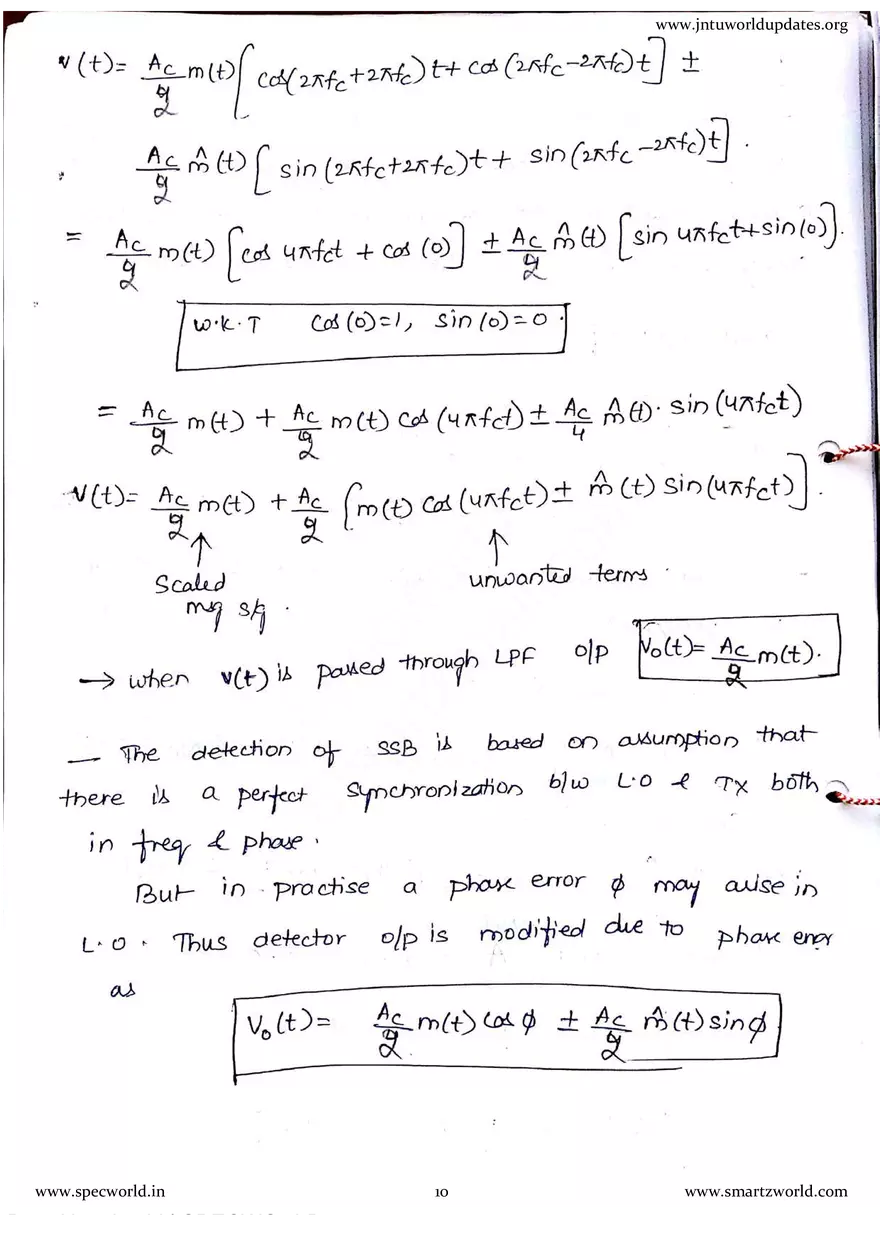 www.jntuworldupdates.org
v(t)= Ac/2 m(t)[cos(2πfc+2πfc)t+ cos(2πfc-2πfc)t] ±
Ac/2 m̂(t)[sin(2πfc+2πfc)t+ sin(2πfc-2πfc)t].
= Ac/2 m(t) [cos 4πfct + cos (0)] ± Ac/2 m̂(t) [sin 4πfct+sin(0)].
W.K.T cos(0)=1, sin(0)=0.
= Ac/2 m(t) + Ac/2 m(t) cos(4πfct) ± Ac/4 m̂(t). sin(4πfct)
V(t)= Ac/2 m(t) + Ac/2 [m(t) cos(4πfct) ± m̂(t) sin(4πfct)].
↑ ↑
Scaled unwanted terms.
msg sig.
→ when v(t) is passed through LPF o/p Vo(t)= Ac/2 m(t).
— The detection of SSB is based on assumption that
there is a perfect synchronization b/w L.O & TX both
in freq & phase.
But in practise a phase error φ may arise in
L.O. Thus detector o/p is modified due to phase error
as
Vo(t)= Ac/2 m(t) cos φ ± Ac/2 m̂(t) sin φ
www.specworld.in 10 www.smartzworld.com